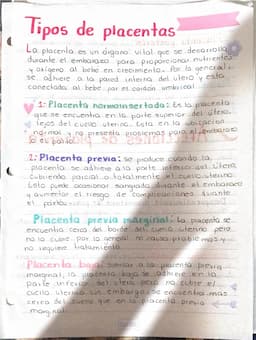 Tipos de placentas
La placenta es un órgano vital que se desarrolla
durante el embarazo para proporcionar nutrientes
y oxígeno al bebé en crecimiento. Por lo general
se adhiere a la pared interna del útero y está
conectada al bebé por el cordón umbilical
1: Placenta normoinsertada: Es la placenta
que se encuentra en la parte superior del útero,
lejos del cuello uterino. Esta es la ubicación
normal y no presenta problemas para el embarazo
o el parto.
2: Placenta previa: se produce cuando la
placenta se adhiere a la parte inferior del útero
cubriendo parcial o totalmente el cuello uterino.
Esto puede ocasionar sangrado durante el embarazo
y aumentar el riesgo de complicaciones durante
el parto.
Placenta previa marginal: La placenta se
encuentra cerca del borde del cuello uterino pero
no lo cubre por lo general no causa problemas y
no requiere tratamiento
Placenta baja: Similar a la placenta previa
marginal, la placenta baja se adhiere en la
parte inferior del útero pero no cubre el
cuello uterino sin embargo, se encuentra más
cerca del cuello que en la placenta previa
marginal.